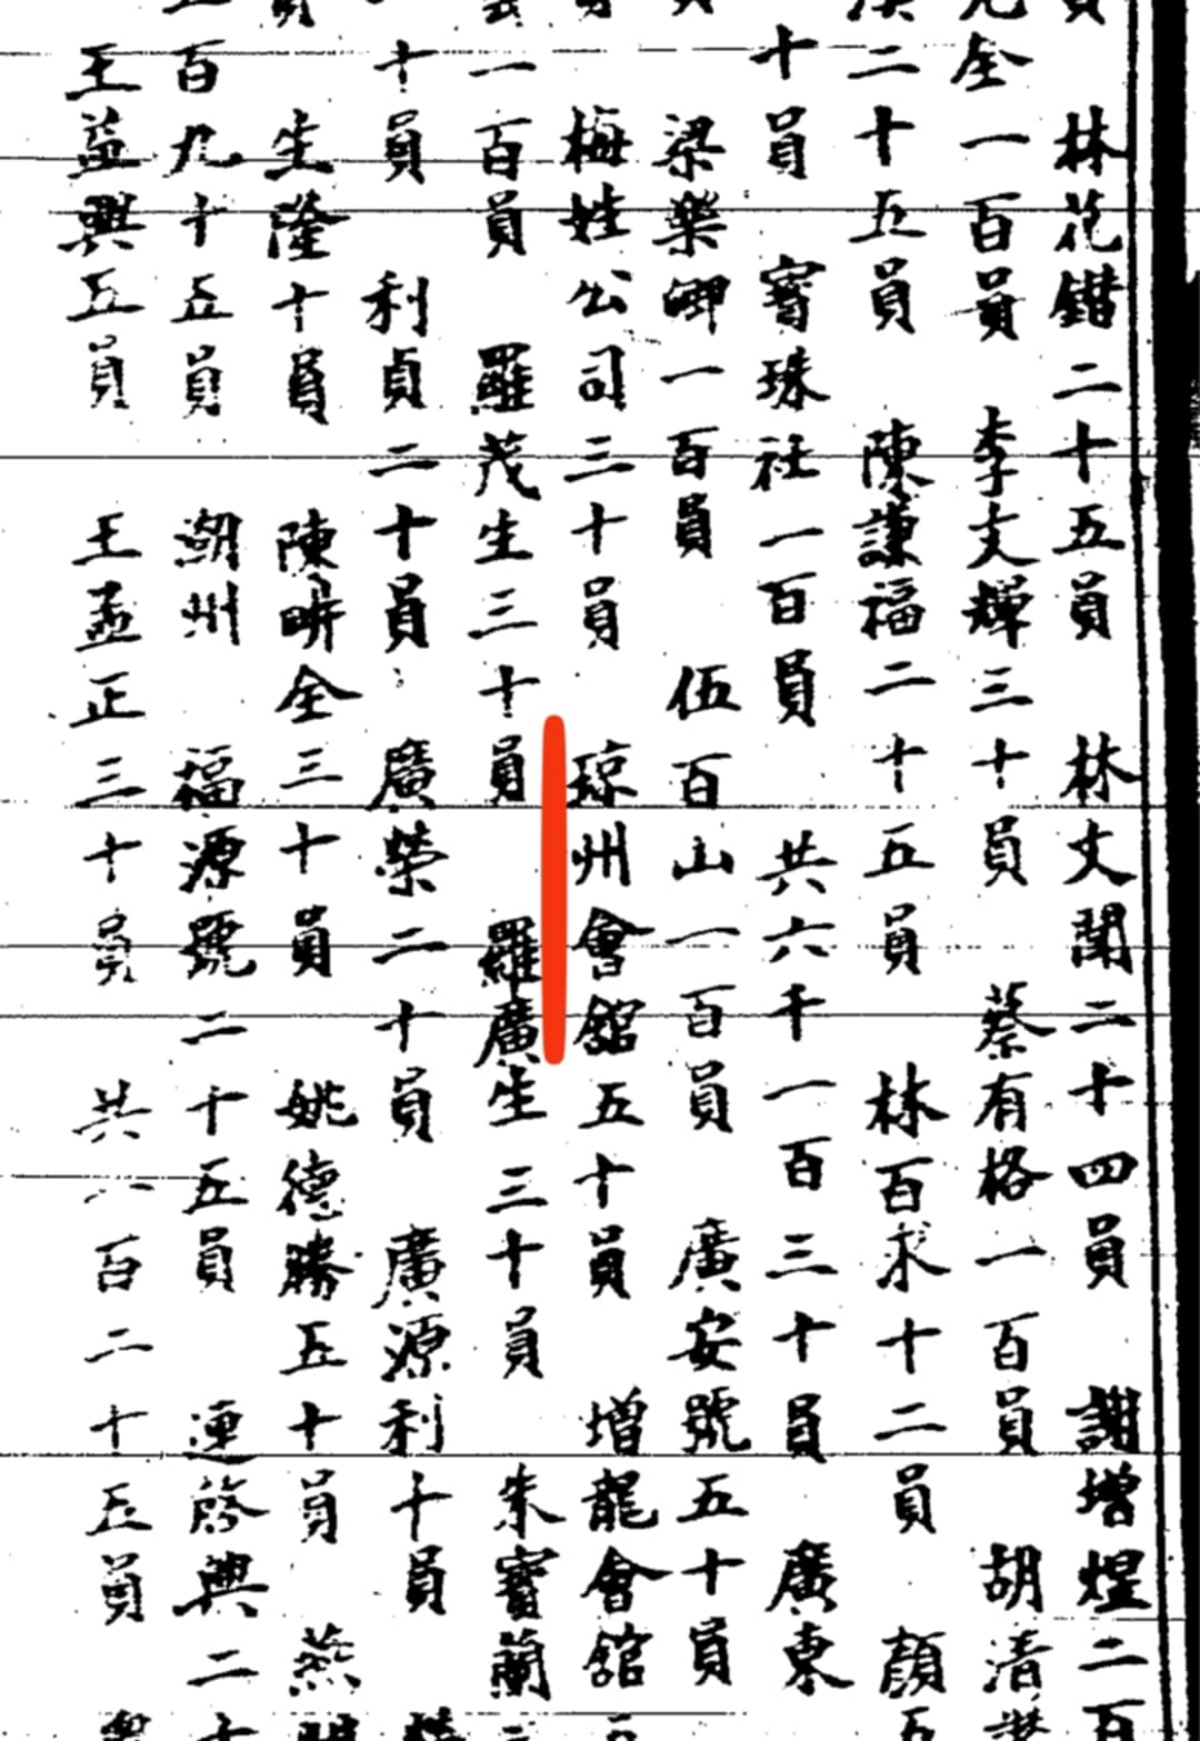 林花鐟二十五員　林文聞二十四員　謝增煌二百
全一百員　李文輝三十員　蔡有格一百員　胡清
二十五員　陳謙福二十五員　林百求十二員　顏五
十員　寶珠社一百員　共六千一百三十員　廣東
梁樂卿一百員　伍百山一百員　廣安號五十員
梅姓公司三十員　瓊州會館五十員　增龍會館
一百員　羅茂生三十員　羅廣生三十員　朱寶蘭二
十員　利貞二十員　廣榮二十員　廣源利十員
生隆十員　陳畊全三十員　姚德勝五十員　燕
百九十五員　潮州　福源號二十五員　連啓興二十
王益興五員　王孟正三十員　共六百二十五員